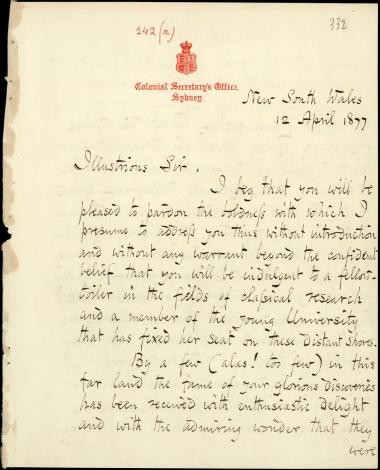 142 (a)
332
Colonial Secretary's Office,
Sydney.
New South Wales
12 April 1877
Illustrious Sir.
I beg that you will be
pleased to pardon the boldness with which I
presume to address you thus without introduction
and without any warrant beyond the confident
belief that you will be indulgent to a fellow-
toiler in the fields of classical research
and a member of the young University
that has fixed her Seat on these Distant Shores.
By a few (alas! too few) in this
far land the fame of your glorious discoveries
has been received with enthusiastic Delight
and with the admiring wonder that they
were